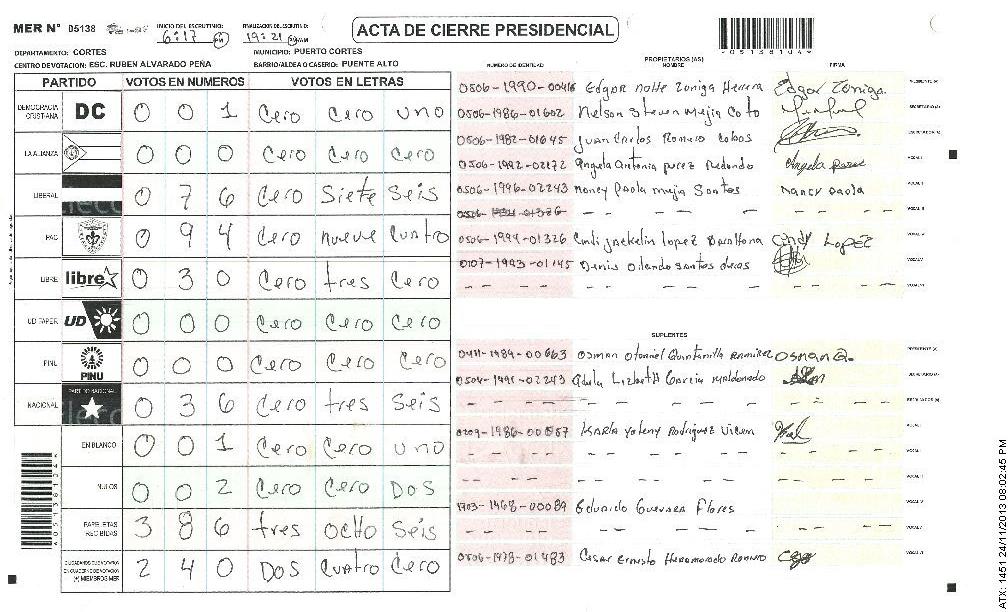 MER N° 05138 INICIO DEL ESCRUTINIO: 6:17 PM FINALIZACION DEL ESCRUTINIO: 19:21 ACTA DE CIERRE PRESIDENCIAL 05138104
DEPARTAMENTO: CORTES MUNICIPIO: PUERTO CORTES
CENTRO DE VOTACION: ESC. RUBEN ALVARADO PEÑA BARRIO/ALDEA O CASERO: PUENTE ALTO
PARTIDO VOTOS EN NUMEROS VOTOS EN LETRAS
DEMOCRACIA CRISTIANA DC 0 0 1 Cero Cero uno
LA ALIANZA 0 0 0 Cero Cero Cero
LIBERAL 0 7 6 Cero Siete Seis
PAC 0 9 4 Cero nueve Cuatro
LIBRE libre 0 3 0 Cero tres Cero
UD FAPER UD 0 0 0 Cero Cero Cero
PINU PINU 0 0 0 Cero Cero Cero
NACIONAL PARTIDO NACIONAL 0 3 6 Cero tres Seis
EN BLANCO 0 0 1 Cero Cero uno
NULOS 0 0 2 Cero Cero DOS
PAPELETAS RECIBIDAS 3 8 6 tres OCHO Seis
CIUDADANOS DE VOTACION EN CUADERNO DE VOTACION (+) MIEMBROS MER 2 4 0 DOS Cuatro Cero
PROPIETARIOS (AS)
NUMERO DE IDENTIDAD NOMBRE FIRMA
0506-1990-00416 Edgar Zuniga Herrera Edgar Zuniga
0506-1986-01602 Nelson Steven Mejia Coto
0506-1982-01645 Juan Carlos Romero Cobos
0506-1992-02172 Angela Antonia perez Redondo Angela perez
0506-1996-02243 Nancy paola mejia Santos Nancy paola
0506-1994-01326 Lopez Barahona Cindy Lopez
0107-1993-01145 Denis Orlando santos
SUPLENTES
0411-1989-00663 Osman Otoniel Quintanilla Ramirez Osman Q.
0506-1991-02243 Lizbeth Garcia maldonado
0209-1986-00887 Karla Yoleny Rodriguez
1703-1968-00089 Eduardo Guevara Flores
0506-1978-01483 Cesar Ernesto Romero
ATX: 1451 24/11/2013 08:02:45 PM